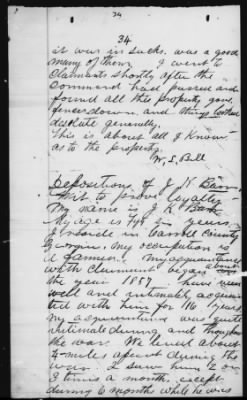 34
34
it was in sacks. was a good
many of them, I went to
Claimants shortly after the
Command had passed and
found all this property gone
fences down and things looked
desolate generally.
This is about all I know
as to the property.
W. S. Bell
Depositions of J. K. Barr
to prove loyalty
My name is J. K.
My age is years,
I reside in Carroll County
Georgia. My occupation is
a farmer. My acquaintance
with claimant began about
the year 1857. have been
well and intimately acquain
ted with him for 16 years
My acquaintance was quite
intimate during and throughout
the war. We lived about
4 miles apart during the
war. I saw him 2 or
3 times a month, except
during 6 months while he was